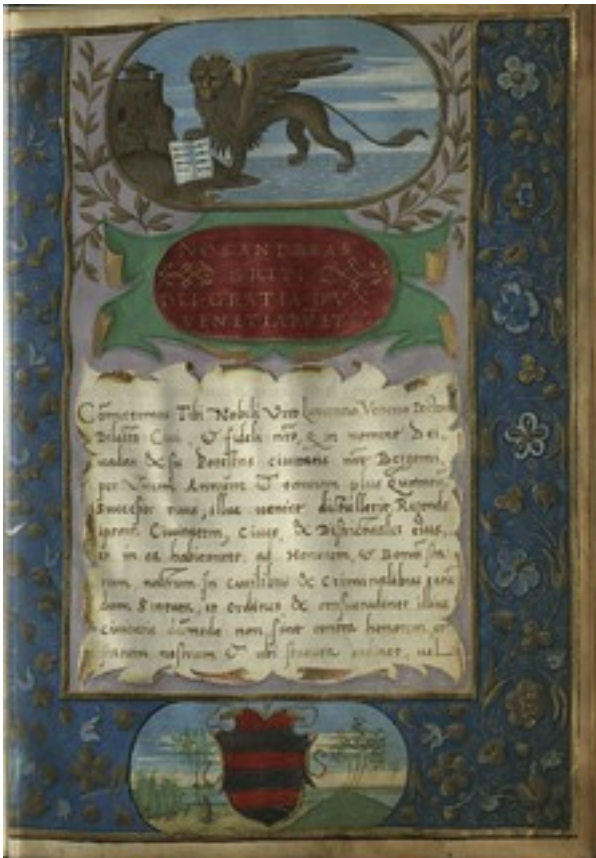 NOS ANDREAS
GRITI
DEI·GRATIA DVX
VENETIARṼ ET
Cõmittimus Tibi Nobili Viro Laurentio Venerio Doctori
Dilecto Civi, & fideli nr̃o, q̃ in nomine Dei,
vadas & sis Potestas civitatis nr̃e Bergomi,
per Unum Annum & tantum plus quantum
Successor tuus, illuc venire distulerit, Regendo
ipsam Civitatem, Cives, & Districtuales eius,
in ea habitantes, ad Honorem, & Bonum
nostrum in civilibus & Criminalibus
dum Statuta, et ordines & consuetudines illius
civitatis dũmodo non sint contra honorem
nostrum & ubi statuta vel
S